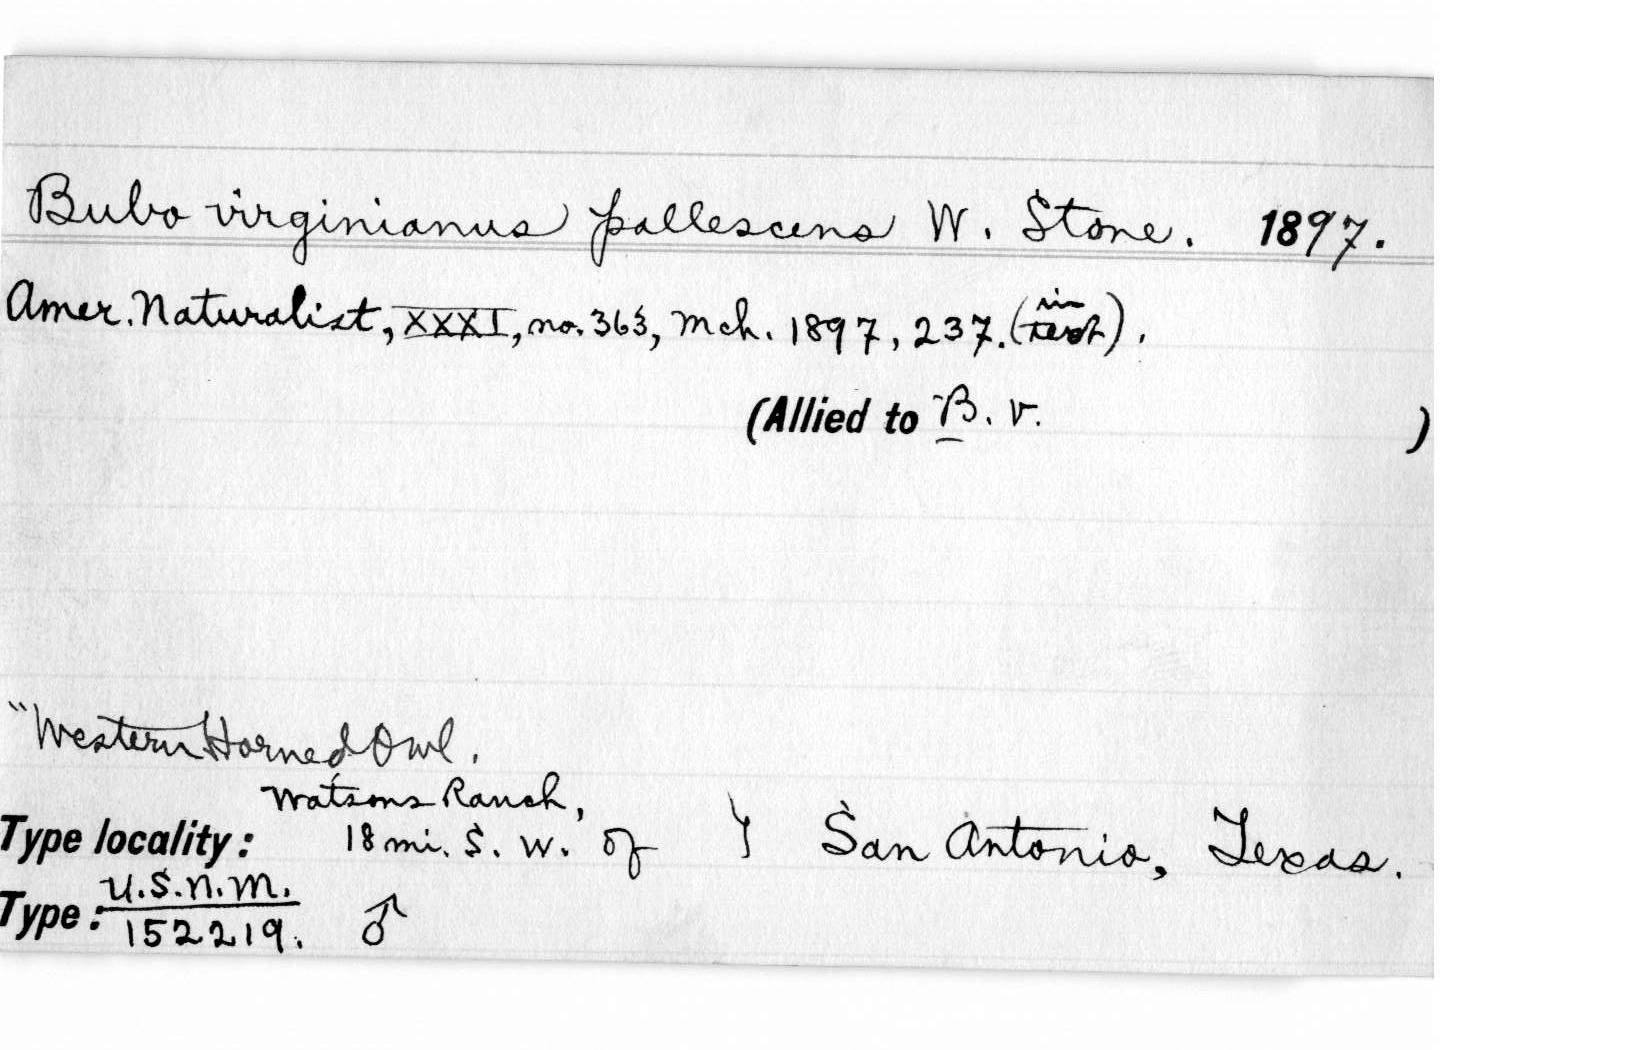 Bubo virginianus pallescens W. Stone. 1897.
Amer. Naturalist, XXXI, no. 363, Mch. 1897, 237. (in text).
(Allied to B. v. )
"Western Horned Owl.
Watsons Ranch,
Type locality: 18 mi. S. W. of San Antonio, Texas.
Type: U.S.N.M. 152219. ♂